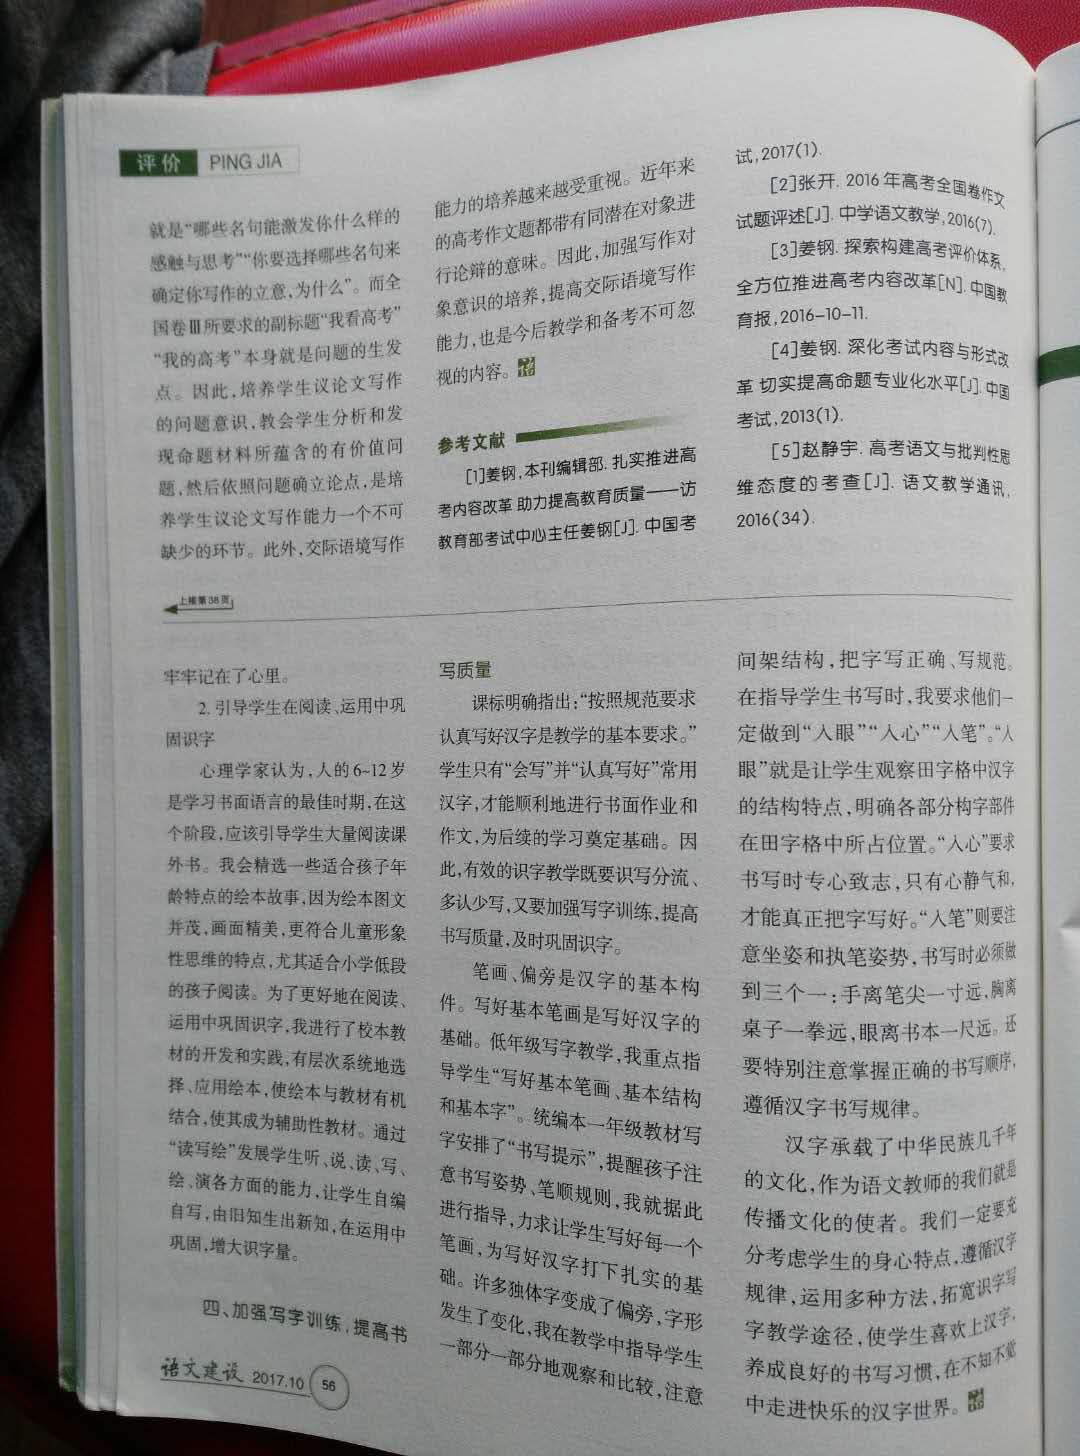 评价 PING JIA
就是“哪些名句能激发你什么样的
感触与思考”“你要选择哪些名句来
确定你写作的立意,为什么”。而全
国卷Ⅲ所要求的副标题“我看高考”
“我的高考”本身就是问题的生发
点。因此,培养学生议论文写作
的问题意识,教会学生分析和发
现命题材料所蕴含的有价值问
题,然后依照问题确立论点,是培
养学生议论文写作能力一个不可
缺少的环节。此外,交际语境写作
能力的培养越来越受重视。近年来
的高考作文题都带有同潜在对象进
行论辩的意味。因此,加强写作对
象意识的培养,提高交际语境写作
能力,也是今后教学和备考不可忽
视的内容。语
参考文献
[1]姜钢,本刊编辑部. 扎实推进高
考内容改革 助力提高教育质量——访
教育部考试中心主任姜钢[J]. 中国考
试,2017(1).
[2]张开. 2016年高考全国卷作文
试题评述[J]. 中学语文教学,2016(7).
[3]姜钢. 探索构建高考评价体系,
全方位推进高考内容改革[N]. 中国教
育报,2016-10-11.
[4]姜钢. 深化考试内容与形式改
革 切实提高命题专业化水平[J]. 中国
考试,2013(1).
[5]赵静宇. 高考语文与批判性思
维态度的考查[J]. 语文教学通讯,
2016(34).
上接第38页
牢牢记在了心里。
2. 引导学生在阅读、运用中巩
固识字
心理学家认为,人的6~12岁
是学习书面语言的最佳时期,在这
个阶段,应该引导学生大量阅读课
外书。我会精选一些适合孩子年
龄特点的绘本故事,因为绘本图文
并茂,画面精美,更符合儿童形象
性思维的特点,尤其适合小学低段
的孩子阅读。为了更好地在阅读、
运用中巩固识字,我进行了校本教
材的开发和实践,有层次系统地选
择、应用绘本,使绘本与教材有机
结合,使其成为辅助性教材。通过
“读写绘”发展学生听、说、读、写、
绘、演各方面的能力,让学生自编
自写,由旧知生出新知,在运用中
巩固,增大识字量。
四、加强写字训练,提高书
写质量
课标明确指出:“按照规范要求
认真写好汉字是教学的基本要求。”
学生只有“会写”并“认真写好”常用
汉字,才能顺利地进行书面作业和
作文,为后续的学习奠定基础。因
此,有效的识字教学既要识写分流、
多认少写,又要加强写字训练,提高
书写质量,及时巩固识字。
笔画、偏旁是汉字的基本构
件。写好基本笔画是写好汉字的
基础。低年级写字教学,我重点指
导学生“写好基本笔画、基本结构
和基本字”。统编本一年级教材写
字安排了“书写提示”,提醒孩子注
意书写姿势、笔顺规则,我就据此
进行指导,力求让学生写好每一个
笔画,为写好汉字打下扎实的基
础。许多独体字变成了偏旁,字形
发生了变化,我在教学中指导学生
一部分一部分地观察和比较,注意
间架结构,把字写正确、写规范。
在指导学生书写时,我要求他们一
定做到“入眼”“入心”“入笔”。“入
眼”就是让学生观察田字格中汉字
的结构特点,明确各部分构字部件
在田字格中所占位置。“入心”要求
书写时专心致志,只有心静气和,
才能真正把字写好。“入笔”则要注
意坐姿和执笔姿势,书写时必须做
到三个一:手离笔尖一寸远,胸离
桌子一拳远,眼离书本一尺远。还
要特别注意掌握正确的书写顺序,
遵循汉字书写规律。
汉字承载了中华民族几千年
的文化,作为语文教师的我们就是
传播文化的使者。我们一定要充
分考虑学生的身心特点,遵循汉字
规律,运用多种方法,拓宽识字写
字教学途径,使学生喜欢上汉字,
养成良好的书写习惯,在不知不觉
中走进快乐的汉字世界。语
语文建设 2017.10 56